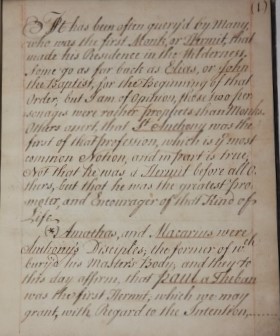 (1)
It has been often query'd by Many,
who was the first Monk, or Hermit, that
made his Residence in the Wilderness.
Some go as far back as Elias, or John
the Baptist, for the Beginning of that
Order, but I am of Opinion, these two per
sonages were rather prophets than Monks.
Others assert, that St. Anthony was the
first of that profession, which is ye most
common Notion, and in part is true,
Not that he was a Hermit before all O,
thers, but that he was the greatest Pro,
moter, and Encourager of that Kind of
Life.
Amathas, and Macarius were
Anthony's Disciples, the former of wch
bury'd his Master's Body, and they to
this day affirm, that Paul a Theban
was the first Hermit, which we may
grant, with Regard to the Intention,